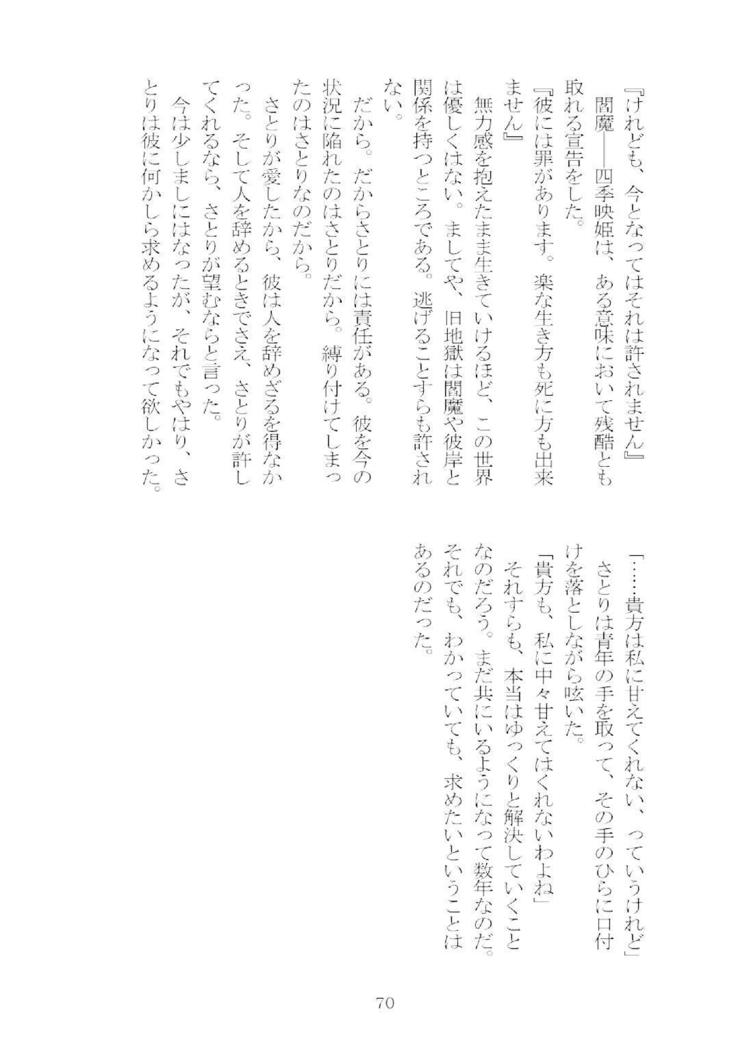 『けれども、今となってはそれは許されません』
　閻魔――四季映姫は、ある意味において残酷とも
取れる宣告をした。
『彼には罪があります。楽な生き方も死に方も出来
ません』
　無力感を抱えたまま生きていけるほど、この世界
は優しくはない。ましてや、旧地獄は閻魔や彼岸と
関係を持つところである。逃げることすらも許され
ない。
　だから。だからさとりには責任がある。彼を今の
状況に陥れたのはさとりだから。縛り付けてしまっ
たのはさとりなのだから。
　さとりが愛したから、彼は人を辞めざるを得なか
った。そして人を辞めるときでさえ、さとりが許し
てくれるなら、さとりが望むならと言った。
　今は少しましにはなったが、それでもやはり、さ
とりは彼に何かしら求めるようになって欲しかった。
「……貴方は私に甘えてくれない、っていうけれど」
　さとりは青年の手を取って、その手のひらに口付
けを落としながら呟いた。
「貴方も、私に中々甘えてはくれないわよね」
　それすらも、本当はゆっくりと解決していくこと
なのだろう。まだ共にいるようになって数年なのだ。
それでも、わかっていても、求めたいということは
あるのだった。
70